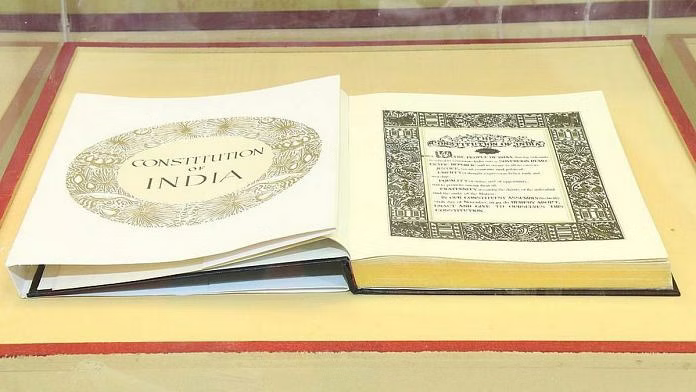 CONSTITUTION
OF
INDIA
THE
CONSTITUTION OF INDIA
WE, THE PEOPLE OF INDIA, having solemnly
SOVEREIGN
JUSTICE, social, economic and political;
LIBERTY of thought, expression, belief, faith and
EQUALITY of status and of opportunity;
and to promote among them all
FRATERNITY assuring the dignity of the individual
and the unity of the Nation;
IN OUR CONSTITUENT ASSEMBLY this
day of November, do HEREBY ADOPT,
ENACT AND GIVE TO OURSELVES THIS
CONSTITUTION.